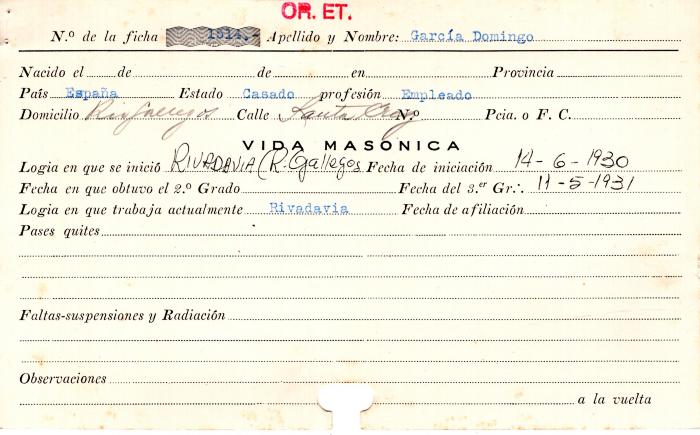 OR. ET.
N.º de la ficha 1514.- Apellido y Nombre: García Domingo
Nacido el de de en Provincia
País España Estado Casado profesión Empleado
Domicilio Rio Gallegos Calle Santa Cruz N.º Pcia. o F. C.
VIDA MASONICA
Logia en que se inició RIVADAVIA (R. Gallegos Fecha de iniciación 14-6-1930
Fecha en que obtuvo el 2.º Grado Fecha del 3.er Gr∴ 11-5-1931
Logia en que trabaja actualmente Rivadavia Fecha de afiliación
Pases quites
Faltas-suspensiones y Radiación
Observaciones
a la vuelta